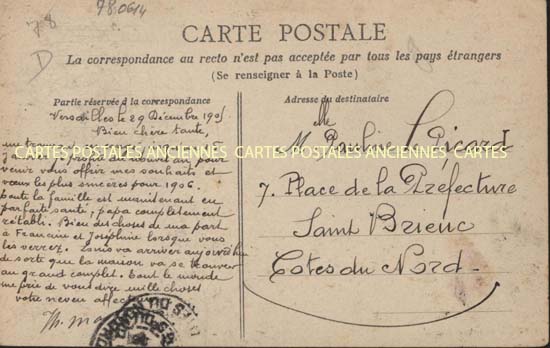 78.0614
78
D
CARTE POSTALE
La correspondance au recto n'est pas acceptée par tous les pays étrangers
(Se renseigner à la Poste)
Partie réservée à la correspondance
Versailles le 29 Décembre 1905
Bien chère tante,
CARTES POSTALES ANCIENNES CARTES POSTALES ANCIENNES CARTES
venir vous offrir mes souhaits et
vœux les plus sincères pour 1906.
toute la famille est maintenant en
parfaite santé, papa complètement
rétabli. Bien des choses de ma part
à Francine et Joséphine lorsque vous
les verrez. Louis va arriver aujourd'hui
de sorte que la maison va se trouver
au grand complet. Tout le monde
me prie de vous dire mille choses
votre neveu
Th.
Adresse du destinataire
Melle Pauline Picard
7. Place de la Préfecture
Saint Brieuc
Côtes du Nord